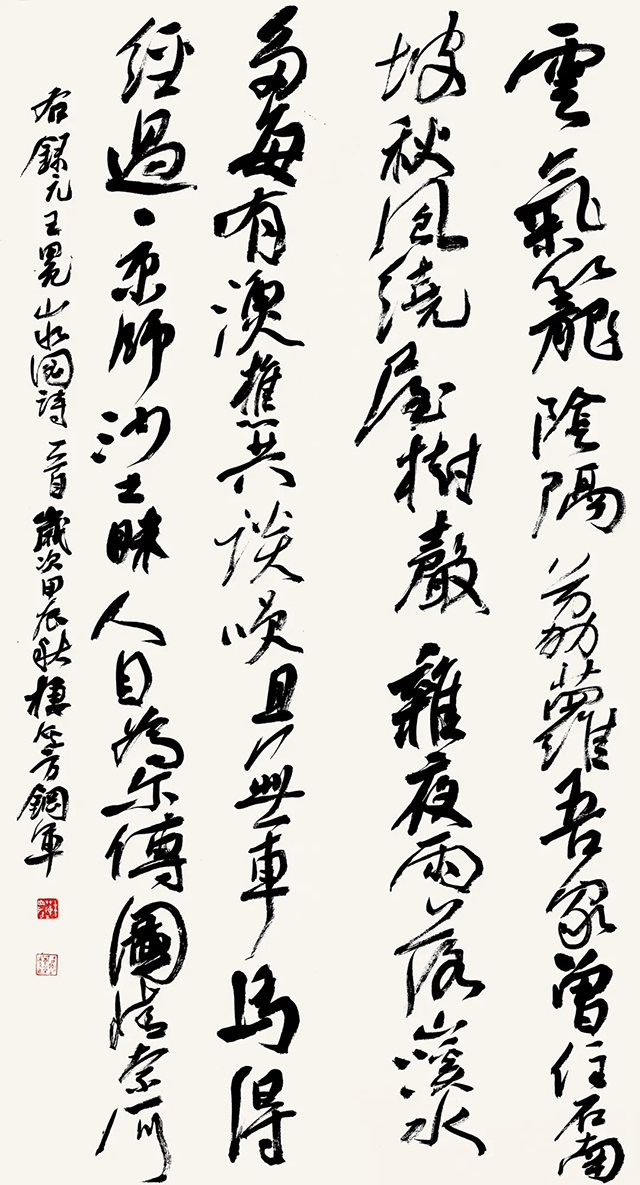 雲氣籠陰隔荔蘿吾家曾住石南
坡秋風繞屋樹聲雜夜雨落山溪水
多每有漁樵共談咲且無車馬得
經過京師沙土眯人目為尔傳圖情奈何
右錄元王冕山水圖詩一首歲次甲辰秋鋼軍